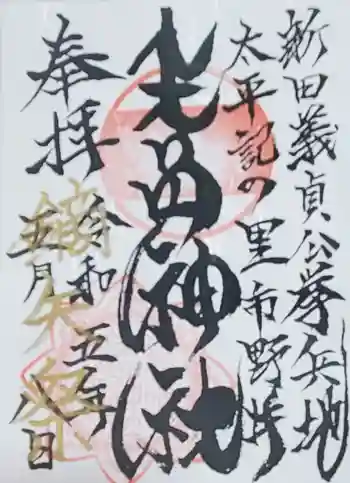 新田義貞公挙兵地
太平記の里市野井
生品神社
奉拝
令和五年
五月八日
鏑矢祭